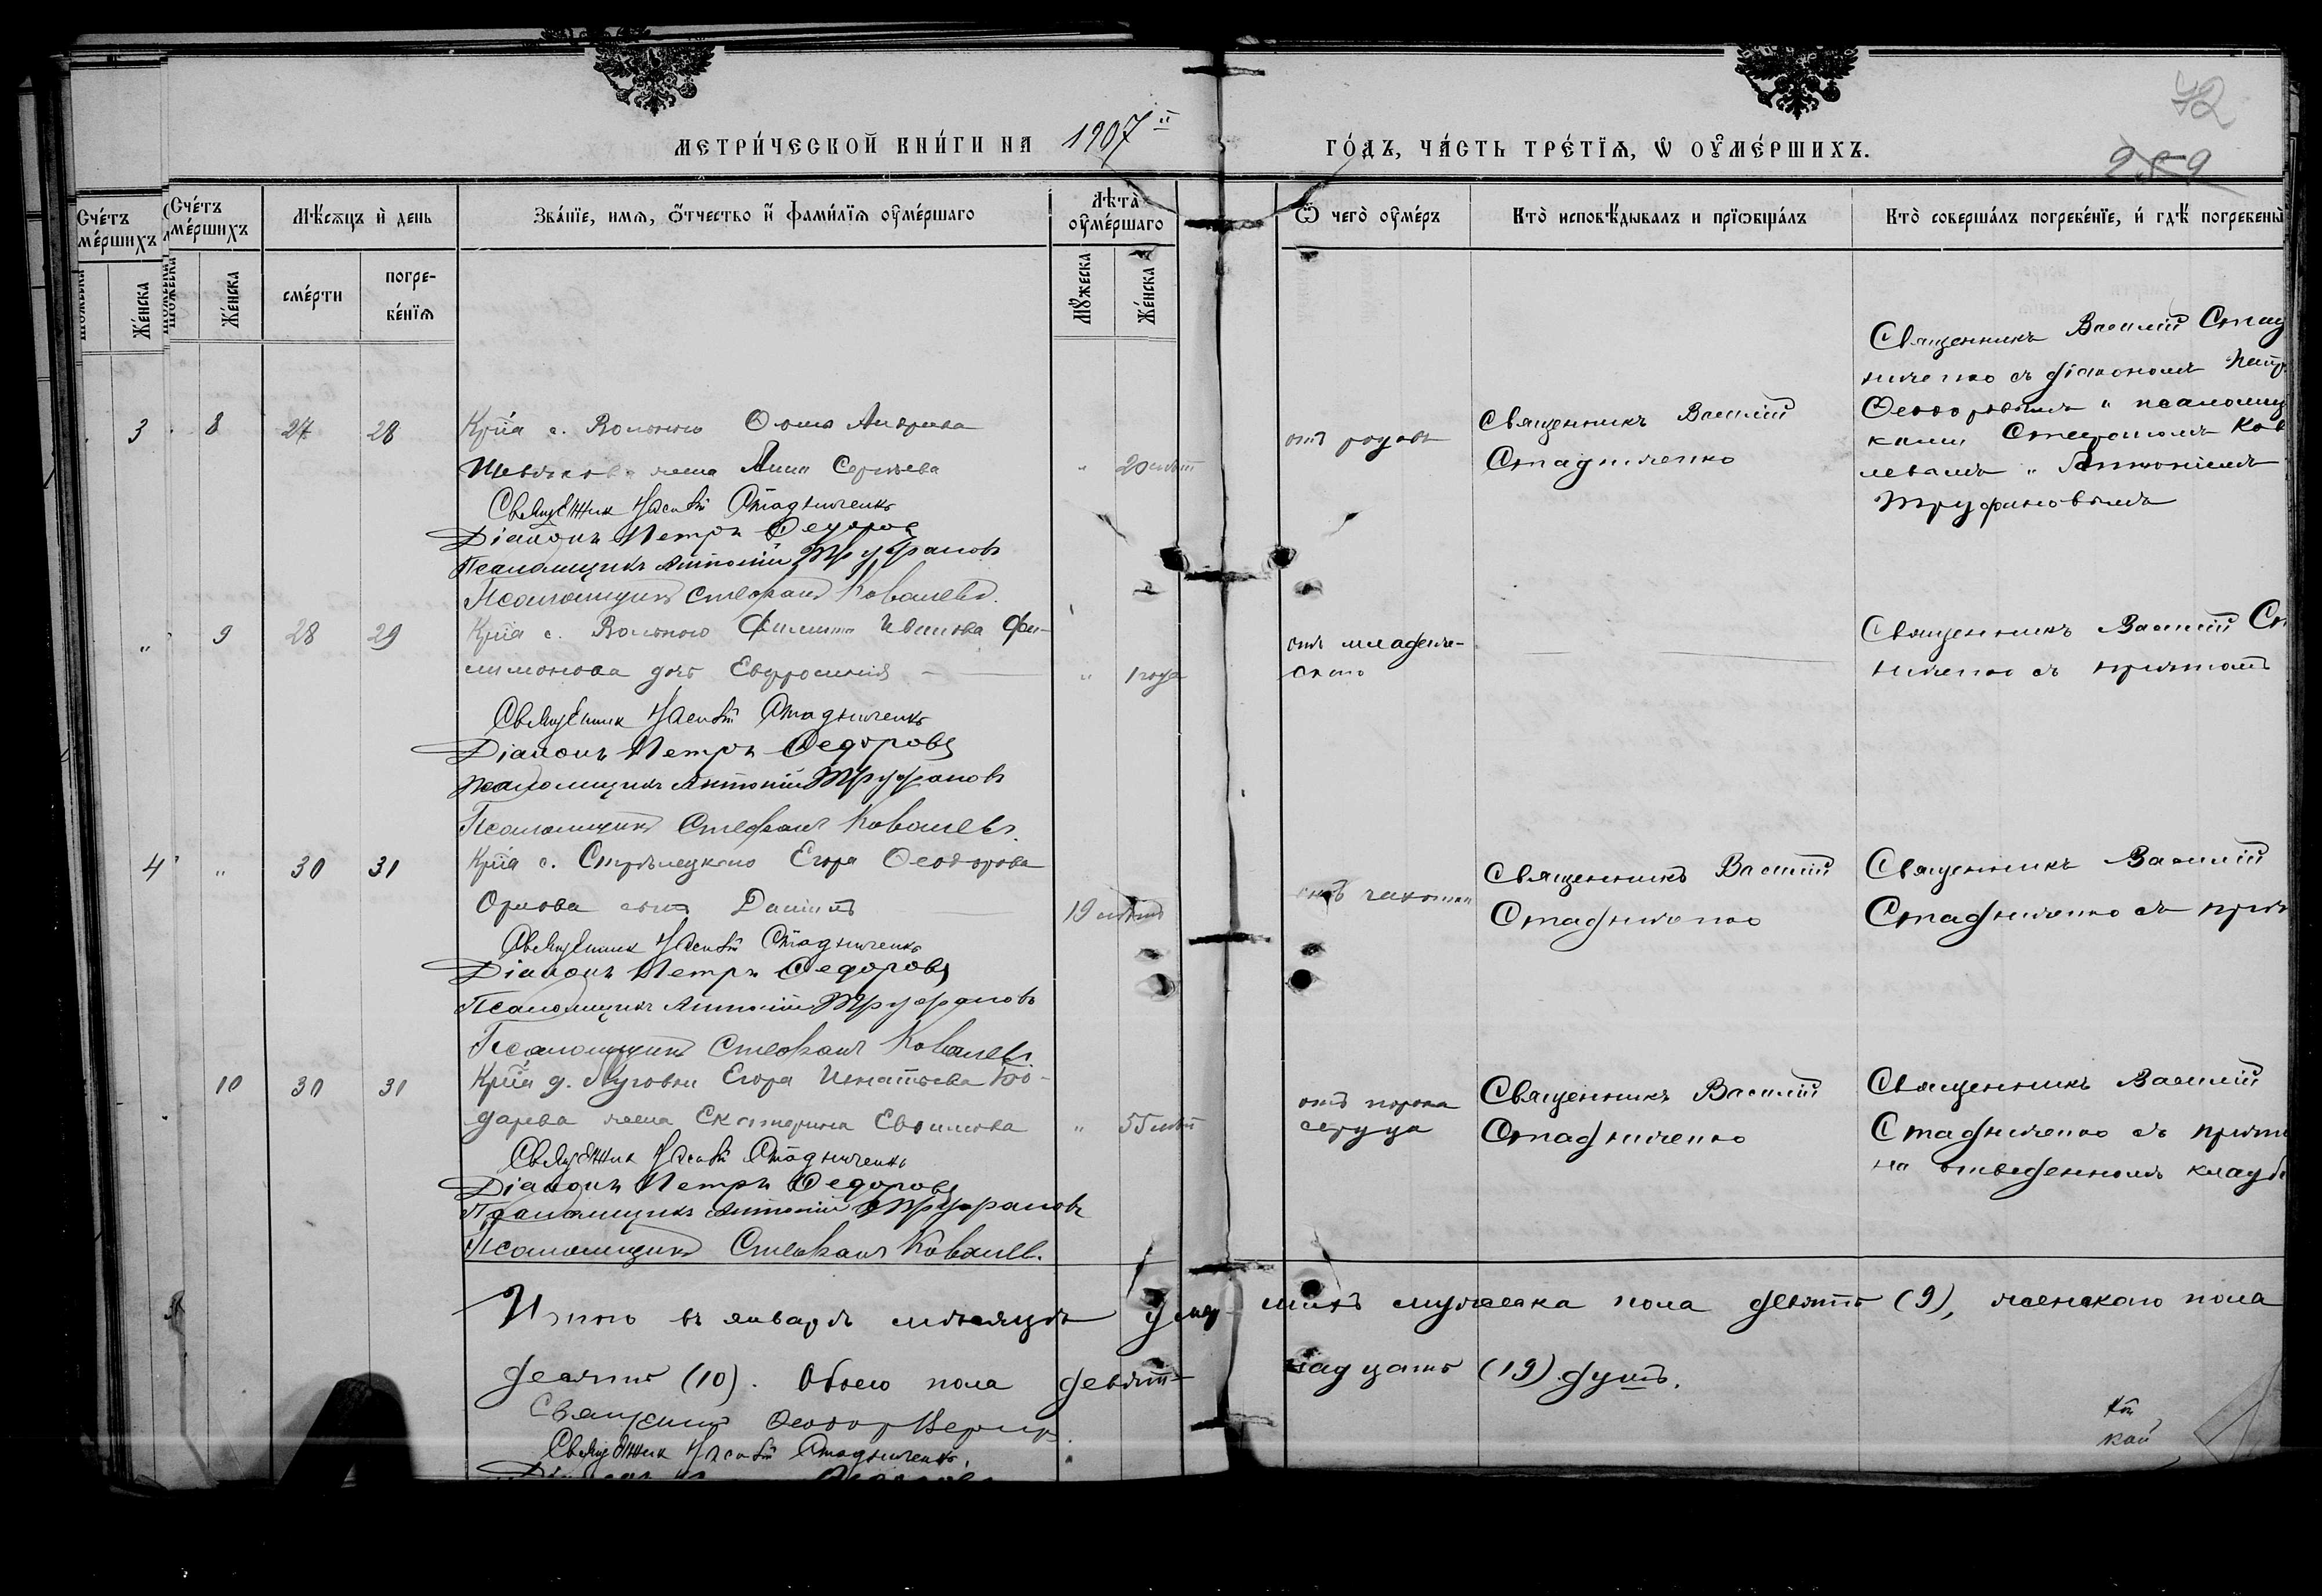 42
259
МЕТРИ́ЧЕСКОЙ КНИ́ГИ НА 1907й ГО́ДЪ, ЧА́СТЬ ТРЕ́ТІѦ, Ѡ ОУМЕ́РШИХЪ.
Сче́тъ мершихъ
Сче́тъ мершихъ
Мѣ́сѧцъ и҆ день
Зва́нїе, имѧ, ѻ҆́тчество и҆ фами́лїѧ оуме́ршаго
Лѣта̀ оуме́ршаго
Ѿ чего̀ оуме́ръ
Кто̀ исповѣ́дывалъ и прїѡбща́лъ
Кто̀ соверша́лъ погребе́нїе, и҆ гдѣ̀ погребены̀
Же́нска
Же́нска
сме́рти
погре-
бе́нїѧ
Мꙋ́жеска
Же́нска
3 8 27 28
Кр-на с. Волоконо Ѳомы Андреева
жена Анна Сергѣева " 20 лѣтъ
Священник Василій Стадниченко
Діаконъ Петръ Ѳедоровъ
Псаломщикъ Антоній Труфановъ
Псаломщикъ Стефанъ Ковалевъ.
отъ родовъ
Священникъ Василій
Стадниченко
Священникъ Василій Стад
ниченко съ діакономъ Петр
Ѳеодоровымъ и псаломщ
ками Стефаномъ Ков
левымъ и Антоніемъ
Труфановымъ
" 9 28 29
Филиппа Иванова Фи-
лимонова дочь Евфросинія " 1 года
Священник Василій Стадниченко
Діаконъ Петръ Ѳедоровъ
Псаломщикъ Антоній Труфановъ
Псаломщикъ Стефанъ Ковалевъ.
отъ младенче-
скаго
Священникъ Василій Ст
ниченко съ причтомъ
4 " 30 31
Кр-на с. Стрѣлецкаго Егора Ѳеодорова
Орлова сынъ Даніилъ 19 лѣтъ
Священник Василій Стадниченко
Діаконъ Петръ Ѳедоровъ
Псаломщикъ Антоній Труфановъ
Псаломщикъ Стефанъ Ковалевъ
отъ чахотки
Священникъ Василій
Стадниченко
Священникъ Василій
Стадниченко съ прич
10 30 31
Кр-на д. Луговки Егора Игнатьева Бо-
дарева жена Екатерина Евѳимова " 55 лѣтъ
Священник Василій Стадниченко
Діаконъ Петръ Ѳедоровъ
Псаломщикъ Антоній Труфановъ
Псаломщикъ Стефанъ Ковалев.
отъ порока
сердца
Священникъ Василій
Стадниченко
Священникъ Василій
Стадниченко съ причт
на отведенномъ кладб
Итого въ январѣ мѣсяцѣ умер-шихъ мужеска пола девять (9), женскаго пола
десять (10). Обоего пола девят-надцать (19) душъ.
Священникъ Ѳеодоръ
Священник Василій Стадниченко.